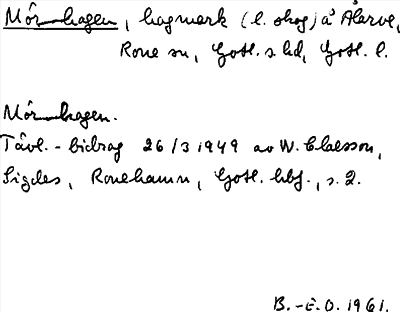 Mörnhagen, hagmark (l. skog) å Ålarve,
Rone sn, Gotl. s. hd, Gotl. l.
Mörnhagen.
Tävl.-bidrag 26/3 1949 av W. Claesson,
Sigdes, Ronehamn, Gotl. hbf., s. 2.
B.-E.O. 1961.